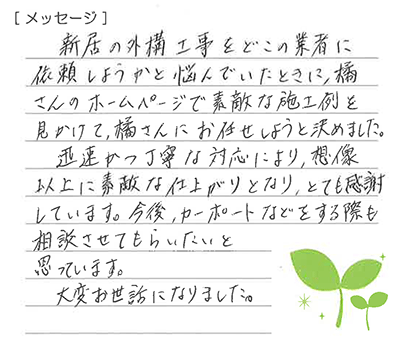 [メッセージ]
新居の外構工事をどこの業者に
依頼しようかと悩んでいたときに,橘
さんのホームページで素敵な施工例を
見かけて,橘さんにお任せしようと決めました。
迅速かつ丁寧な対応により,想像
以上に素敵な仕上がりとなり,とても感謝
しています。今後,カーポートなどをする際も
相談させてもらいたいと
思っています。
大変お世話になりました。